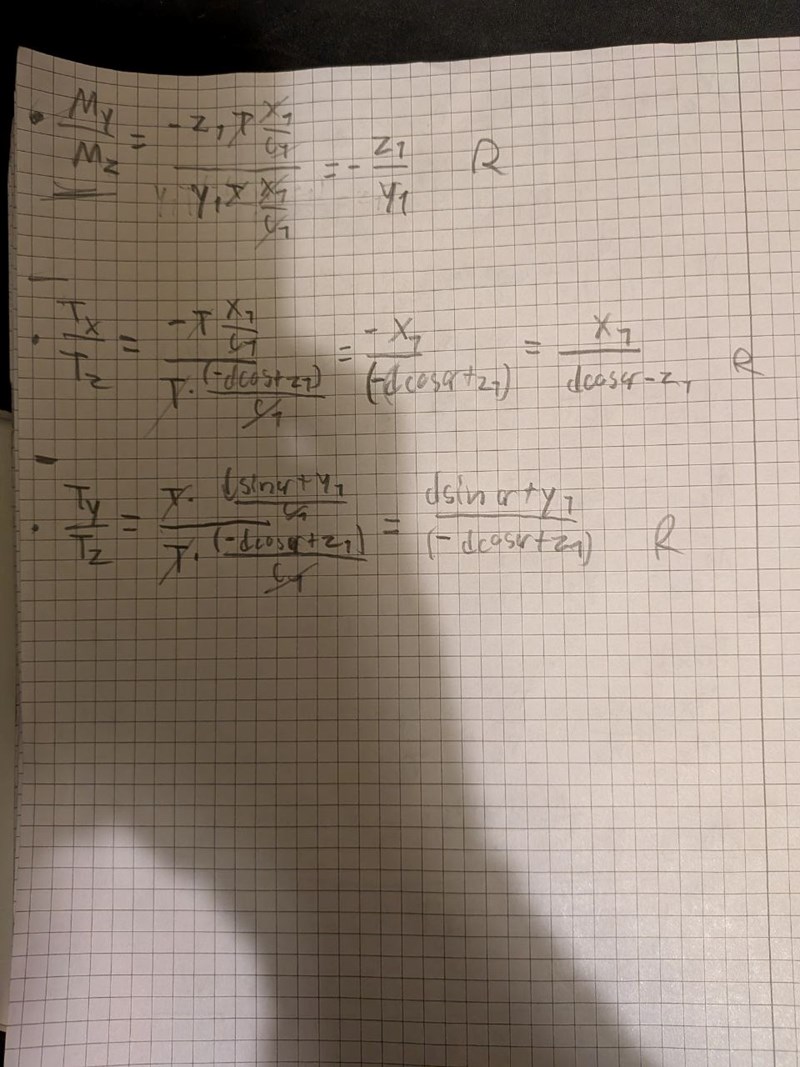 • M_y/M_z = (-z_1 T x_1/c_1)/(y_1 T x_1/c_1) = - z_1/y_1 R
• T_x/T_z = (-T x_1/c_1)/(T · (-dcosα+z_1)/c_1) = -x_1/(-dcosα+z_1) = x_1/(dcosα-z_1) R
• T_y/T_z = (T · (dsinα+y_1)/c_1)/(T · (-dcosα+z_1)/c_1) = (dsinα+y_1)/(-dcosα+z_1) R